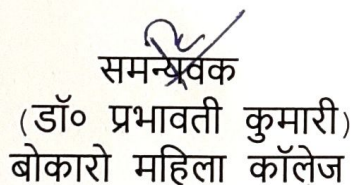 समन्वयक
(डॉ० प्रभावती कुमारी)
बोकारो महिला कॉलेज